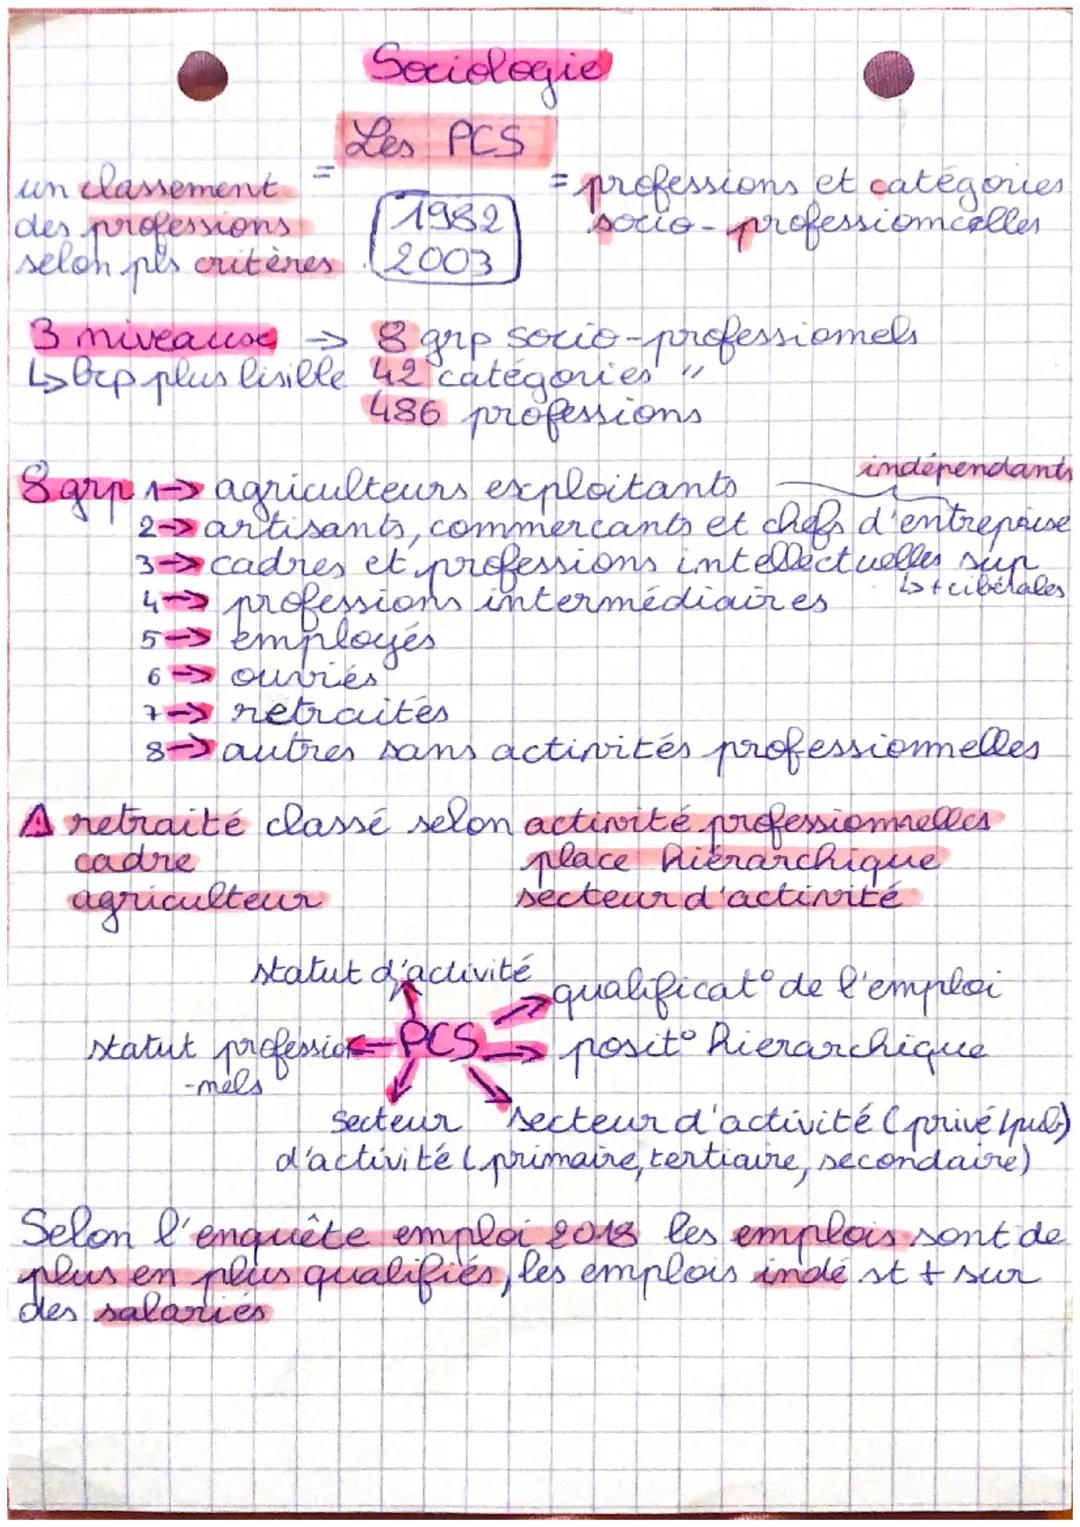 Sociologie
Les PCS
= un classement
des professions
selon pls critères
1982
2003
= professions et catégories
socio-professionnelles
3 niveaux → 8 grp socio-professionnels
↳ bcp plus lisible 42 catégories "
486 professions
indépendants
8 grp 1→ agriculteurs exploitants
2→ artisants, commercants et chefs d'entreprise
3→ cadres et professions intellectuelles sup
↳ + libérales
4→ professions intermédiaires
5→ employés
6→ ouvriés
7→ retraités
8→ autres sans activités professionnelles
⚠ retraité classé selon activité professionnelles
cadre place hiérarchique
agriculteur secteur d'activité
statut d'activité
qualificat° de l'emploi
statut profession ← PCS → posit° hierarchique
-nels
secteur secteur d'activité (privé/pub)
d'activité (primaire, tertiaire, secondaire)
Selon l'enquête emploi 2018 les emplois sont de
plus en plus qualifiés, les emplois indé st + sur
des salariés